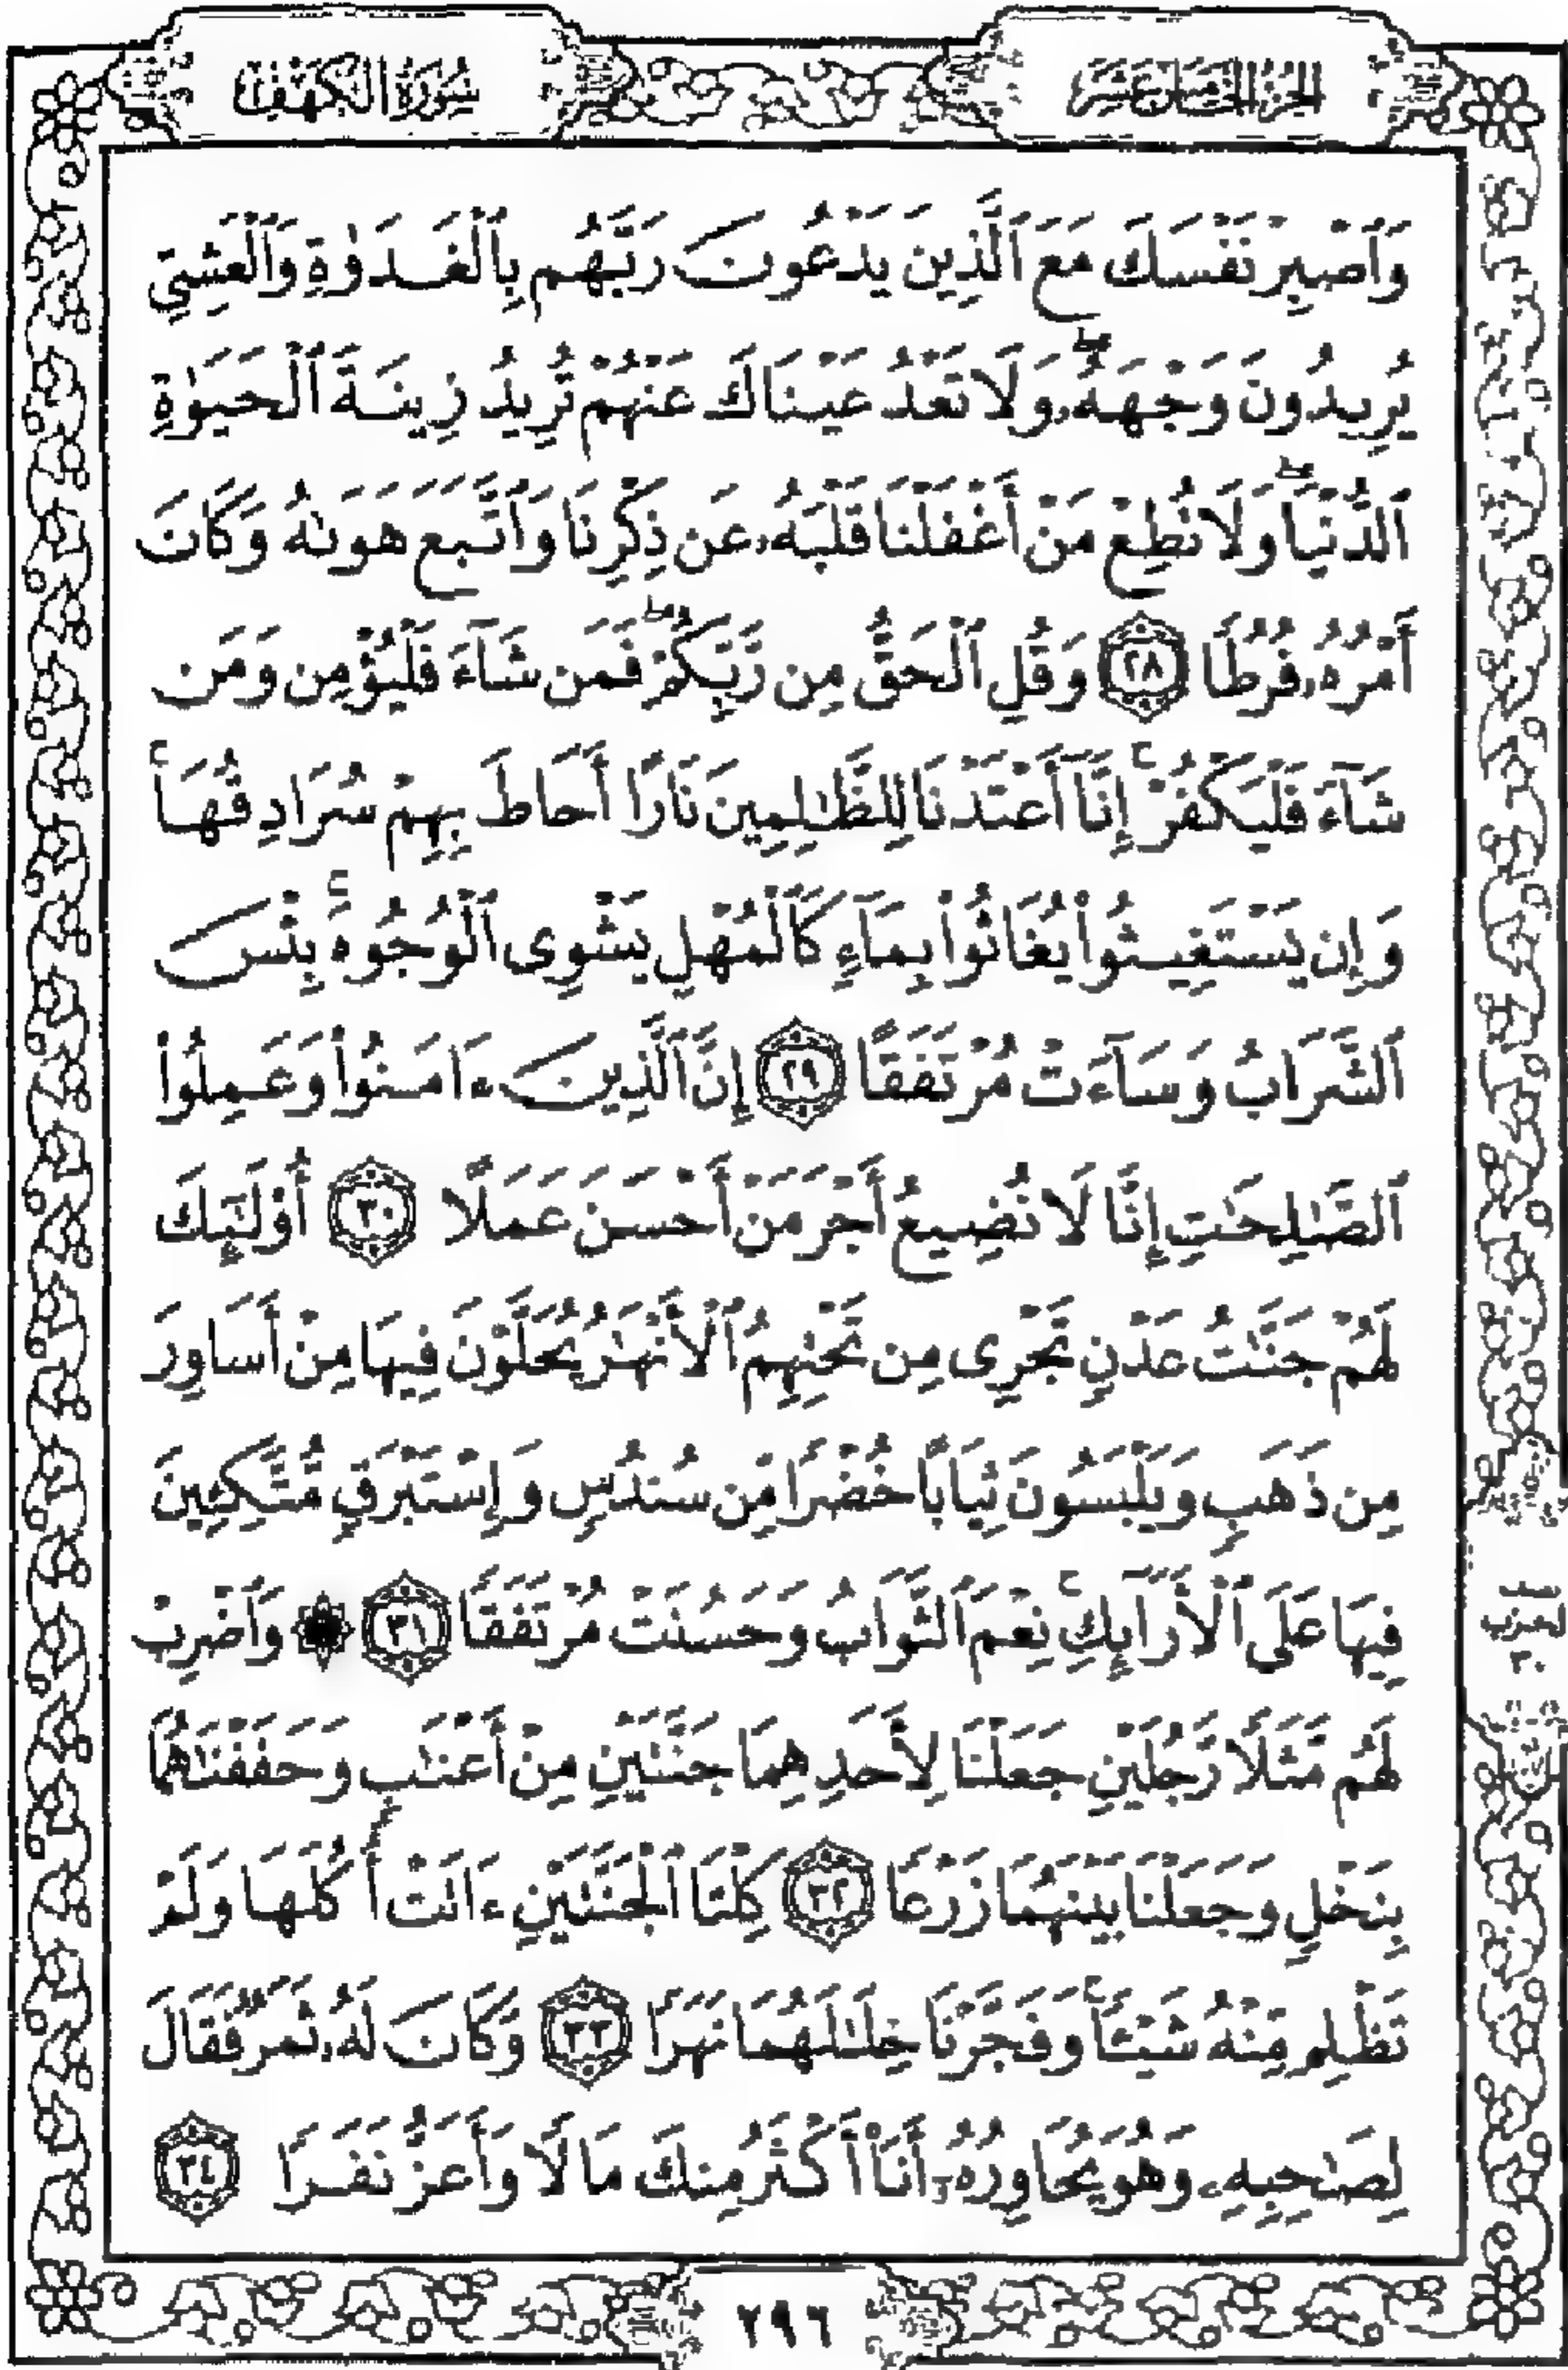 الجزء الخامس عشر
سورة الكهف
وَٱصۡبِرۡ نَفۡسَكَ مَعَ ٱلَّذِينَ يَدۡعُونَ رَبَّهُم بِٱلۡغَدَوٰةِ وَٱلۡعَشِيِّ
يُرِيدُونَ وَجۡهَهُۥۖ وَلَا تَعۡدُ عَيۡنَاكَ عَنۡهُمۡ تُرِيدُ زِينَةَ ٱلۡحَيَوٰةِ
ٱلدُّنۡيَاۖ وَلَا تُطِعۡ مَنۡ أَغۡفَلۡنَا قَلۡبَهُۥ عَن ذِكۡرِنَا وَٱتَّبَعَ هَوَىٰهُ وَكَانَ
أَمۡرُهُۥ فُرُطٗا ٢٨ وَقُلِ ٱلۡحَقُّ مِن رَّبِّكُمۡۖ فَمَن شَآءَ فَلۡيُؤۡمِن وَمَن
شَآءَ فَلۡيَكۡفُرۡۚ إِنَّآ أَعۡتَدۡنَا لِلظَّٰلِمِينَ نَارًا أَحَاطَ بِهِمۡ سُرَادِقُهَاۚ
وَإِن يَسۡتَغِيثُواْ يُغَاثُواْ بِمَآءٖ كَٱلۡمُهۡلِ يَشۡوِي ٱلۡوُجُوهَۚ بِئۡسَ
ٱلشَّرَابُ وَسَآءَتۡ مُرۡتَفَقًا ٢٩ إِنَّ ٱلَّذِينَ ءَامَنُواْ وَعَمِلُواْ
ٱلصَّٰلِحَٰتِ إِنَّا لَا نُضِيعُ أَجۡرَ مَنۡ أَحۡسَنَ عَمَلًا ٣٠ أُوْلَٰٓئِكَ
لَهُمۡ جَنَّٰتُ عَدۡنٖ تَجۡرِي مِن تَحۡتِهِمُ ٱلۡأَنۡهَٰرُ يُحَلَّوۡنَ فِيهَا مِنۡ أَسَاوِرَ
مِن ذَهَبٖ وَيَلۡبَسُونَ ثِيَابًا خُضۡرٗا مِّن سُندُسٖ وَإِسۡتَبۡرَقٖ مُّتَّكِـِٔينَ
فِيهَا عَلَى ٱلۡأَرَآئِكِۚ نِعۡمَ ٱلثَّوَابُ وَحَسُنَتۡ مُرۡتَفَقٗا ٣١ ۞ وَٱضۡرِبۡ
لَهُم مَّثَلٗا رَّجُلَيۡنِ جَعَلۡنَا لِأَحَدِهِمَا جَنَّتَيۡنِ مِنۡ أَعۡنَٰبٖ وَحَفَفۡنَٰهُمَا
بِنَخۡلٖ وَجَعَلۡنَا بَيۡنَهُمَا زَرۡعٗا ٣٢ كِلۡتَا ٱلۡجَنَّتَيۡنِ ءَاتَتۡ أُكُلَهَا وَلَمۡ
تَظۡلِم مِّنۡهُ شَيۡـٔٗاۚ وَفَجَّرۡنَا خِلَٰلَهُمَا نَهَرٗا ٣٣ وَكَانَ لَهُۥ ثَمَرٞ فَقَالَ
لِصَٰحِبِهِۦ وَهُوَ يُحَاوِرُهُۥٓ أَنَا۠ أَكۡثَرُ مِنكَ مَالٗا وَأَعَزُّ نَفَرٗا ٣٤
نصف
الحزب
٣٠
٢٩٦